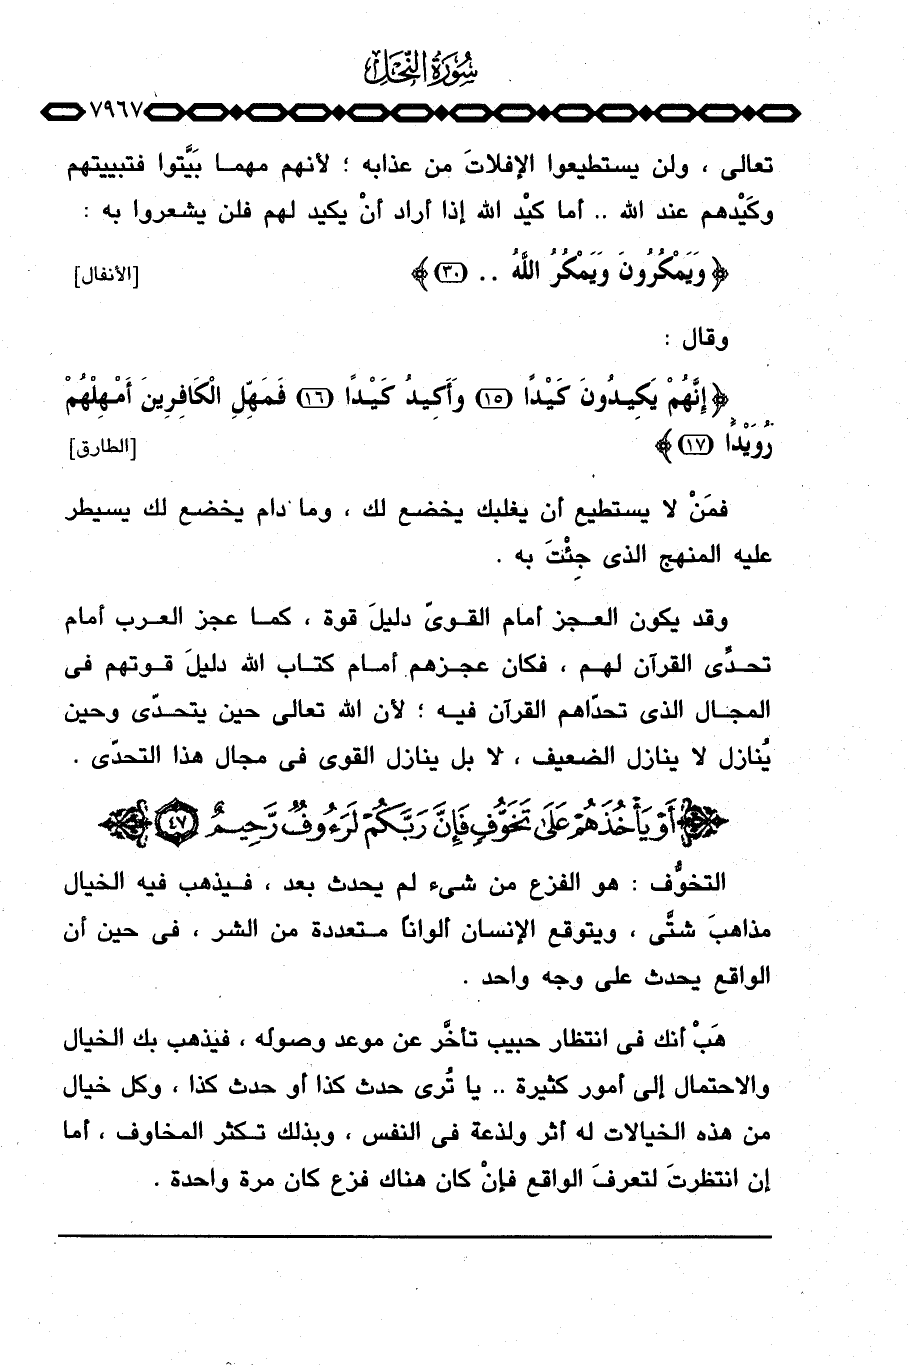 سُورَةُ النَّحْلِ
٧٩٦٧
تعالى ، ولن يستطيعوا الإفلاتَ من عذابه ؛ لأنهم مهما بَيَّتوا فتبييتهم
وكَيْدهم عند الله .. أما كيْد الله إذا أراد أنْ يكيد لهم فلن يشعروا به :
﴿ وَيَمْكُرُونَ وَيَمْكُرُ اللَّهُ .. (٣٠) ﴾ [الأنفال]
وقال :
﴿ إِنَّهُمْ يَكِيدُونَ كَيْدًا (١٥) وَأَكِيدُ كَيْدًا (١٦) فَمَهِّلِ الْكَافِرِينَ أَمْهِلْهُمْ
رُوَيْدًا (١٧) ﴾ [الطارق]
فمَنْ لا يستطيع أن يغلبك يخضع لك ، وما دام يخضع لك يسيطر
عليه المنهج الذى جِئْتَ به .
وقد يكون العجز أمام القوىّ دليلَ قوة ، كما عجز العرب أمام
تحدِّى القرآن لهم ، فكان عجزهم أمام كتاب الله دليلَ قوتهم فى
المجال الذى تحدّاهم القرآن فيه ؛ لأن الله تعالى حين يتحدّى وحين
يُنازل لا ينازل الضعيف ، لا بل ينازل القوى فى مجال هذا التحدّى .
أَوْ يَأْخُذَهُمْ عَلَىٰ تَخَوُّفٍ فَإِنَّ رَبَّكُمْ لَرَءُوفٌ رَّحِيمٌ ٤٧
التخوُّف : هو الفزع من شىء لم يحدث بعد ، فيذهب فيه الخيال
مذاهبَ شتَّى ، ويتوقع الإنسان ألواناً متعددة من الشر ، فى حين أن
الواقع يحدث على وجه واحد .
هَبْ أنك فى انتظار حبيب تأخَّر عن موعد وصوله ، فيذهب بك الخيال
والاحتمال إلى أمور كثيرة .. يا تُرى حدث كذا أو حدث كذا ، وكل خيال
من هذه الخيالات له أثر ولذعة فى النفس ، وبذلك تكثر المخاوف ، أما
إن انتظرتَ لتعرفَ الواقع فإنْ كان هناك فزع كان مرة واحدة .